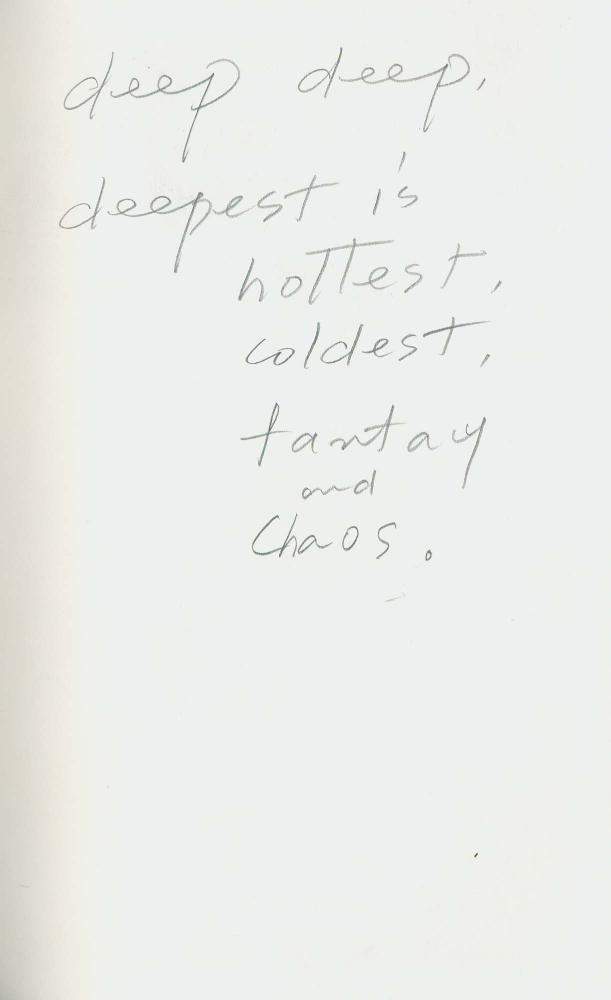 deep deep,
deepest is
hottest,
coldest,
fantay
and
Chaos.